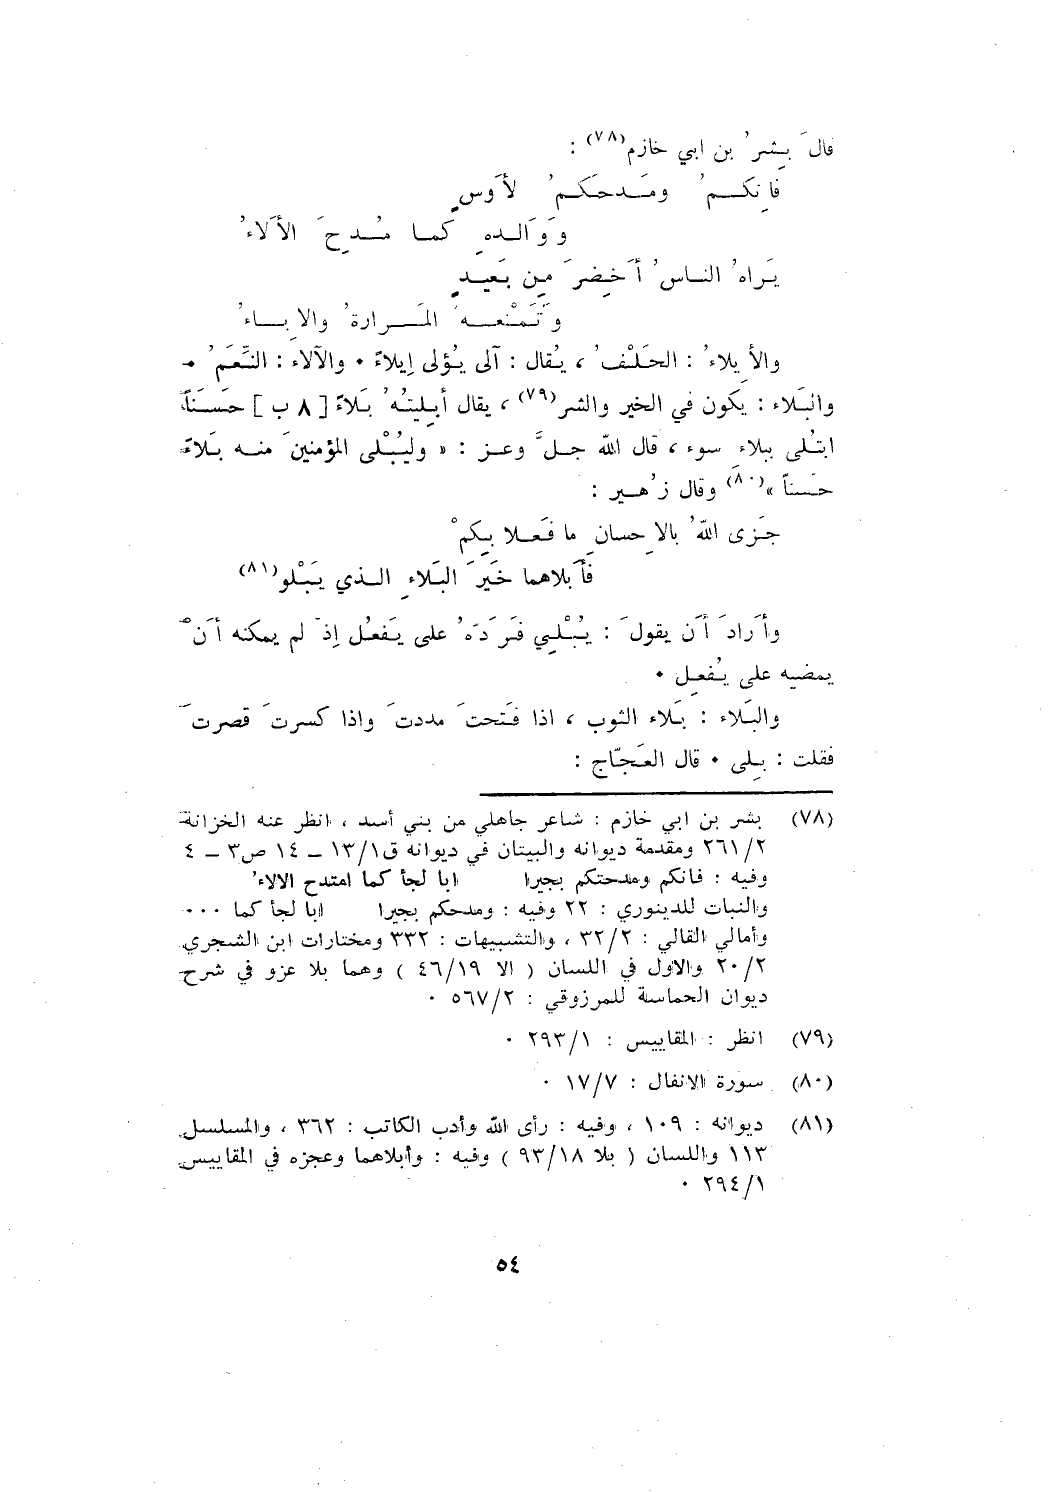 قالَ بِشرُ بن ابي خازم(٧٨) :
فاِنكـــمُ ومَـــدحَكـــمُ لأَوسٍ
وَوَالـــدهِ كمـــا مُـــدِحَ الأَلاءُ
يَراهُ النـــاسُ أَخضِرَ مِن بَعيـــدٍ
وَتَمْنَعـــهُ المَـــرارةُ والاِبـــاءُ
والأيلاءُ : الحَلْفُ ، يُقال : آلى يُؤلى إيلاءً ٠ والآلاء : النَّعَمُ ٠
والبَلاء : يكون في الخير والشر(٧٩) ، يقال أبليتُهُ بَلاءً [ ٨ ب ] حَسَناً
ابتُلى ببلاءِ سوء ، قال اللّه جـــلَّ وعـــز : « وليُبْلى المؤمنينَ منـــه بَلاءً
حَسَناً »(٨٠) وقال زُهيـــر :
جَزى اللّهُ بالاِحسانِ ما فَعَـــلا بِكمْ
فأَبلاهما خَيرَ البَلاءِ الـــذي يَبْلو(٨١)
وأَرادَ أَن يقولَ : يُبْلِـــي فَرَدّهُ على يَفعُل إذْ لم يمكنه أَنْ
يمضيه على يُفعِـــل ٠
والبَلاء : بَلاء الثوب ، اذا فَتَحتَ مددتَ واذا كسرتَ قصرتَ
فقلت : بِـــلى ٠ قال العَجّاج :
(٧٨) بشر بن ابي خازم : شاعر جاهلي من بني أسد ، انظر عنه الخزانة
٢٦١/٢ ومقدمة ديوانه والبيتان في ديوانه ق١٣/١ ــ ١٤ ص٣ ــ ٤
وفيه : فانكم ومدحتكم بجيرا ابا لجأ كما امتدح الالاءُ
والنبات للدينوري : ٢٢ وفيه : ومدحكم بجيرا ابا لجأ كما ٠٠٠
وأمالي القالي : ٣٢/٢ ، والتشبيهات : ٣٣٢ ومختارات ابن الشجري
٢٠/٢ والاول في اللسان ( الا ٤٦/١٩ ) وهما بلا عزو في شرح
ديوان الحماسة للمرزوقي : ٥٦٧/٢ ٠
(٧٩) انظر : المقاييس : ٢٩٣/١ ٠
(٨٠) سورة الانفال : ١٧/٧ ٠
(٨١) ديوانه : ١٠٩ ، وفيه : رأى اللّه وأدب الكاتب : ٣٦٢ ، والمسلسل
١١٣ واللسان ( بلا ٩٣/١٨ ) وفيه : وأبلاهما وعجزه في المقاييس
٢٩٤/١ ٠
٥٤